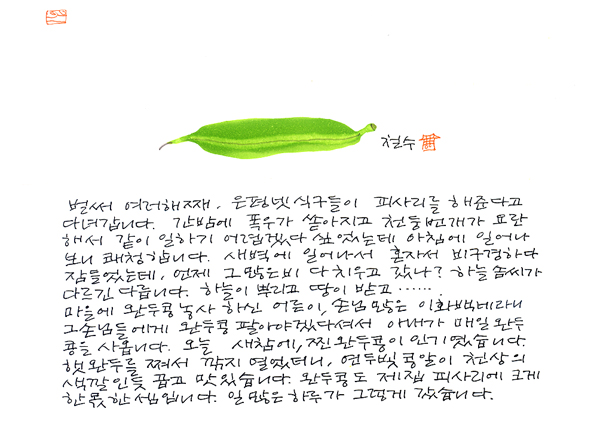 철수
벌써 여러해째, 은평벗 식구들이 피사리를 해준다고
다녀갑니다. 간밤에 폭우가 쏟아지고 천둥번개가 요란
해서 같이 일하기 어렵겠다 싶었는데 아침에 일어나
보니 쾌청합니다. 새벽에 일어나서 혼자서 비구경하다
잠들었는데, 언제 그많은비 다 치우고 갔나? 하늘 솜씨가
다르긴 다릅니다. 하늘이 뿌리고 땅이 받고 ……
마을에 완두콩 농사 하신 어른이, 손님 많은 이화백네라니
그손님들에게 완두콩 팔아야겠다셔서 아내가 매일 완두
콩을 사옵니다. 오늘 새참에, 찐 완두콩이 인기였습니다.
햇완두를 쪄서 깍지 열었더니, 연두빛 콩알이 천상의
색깔인듯 곱고 맛있습니다. 완두콩도 제집 피사리에 크게
한몫한 셈입니다. 일 많은 하루가 그렇게 갔습니다.